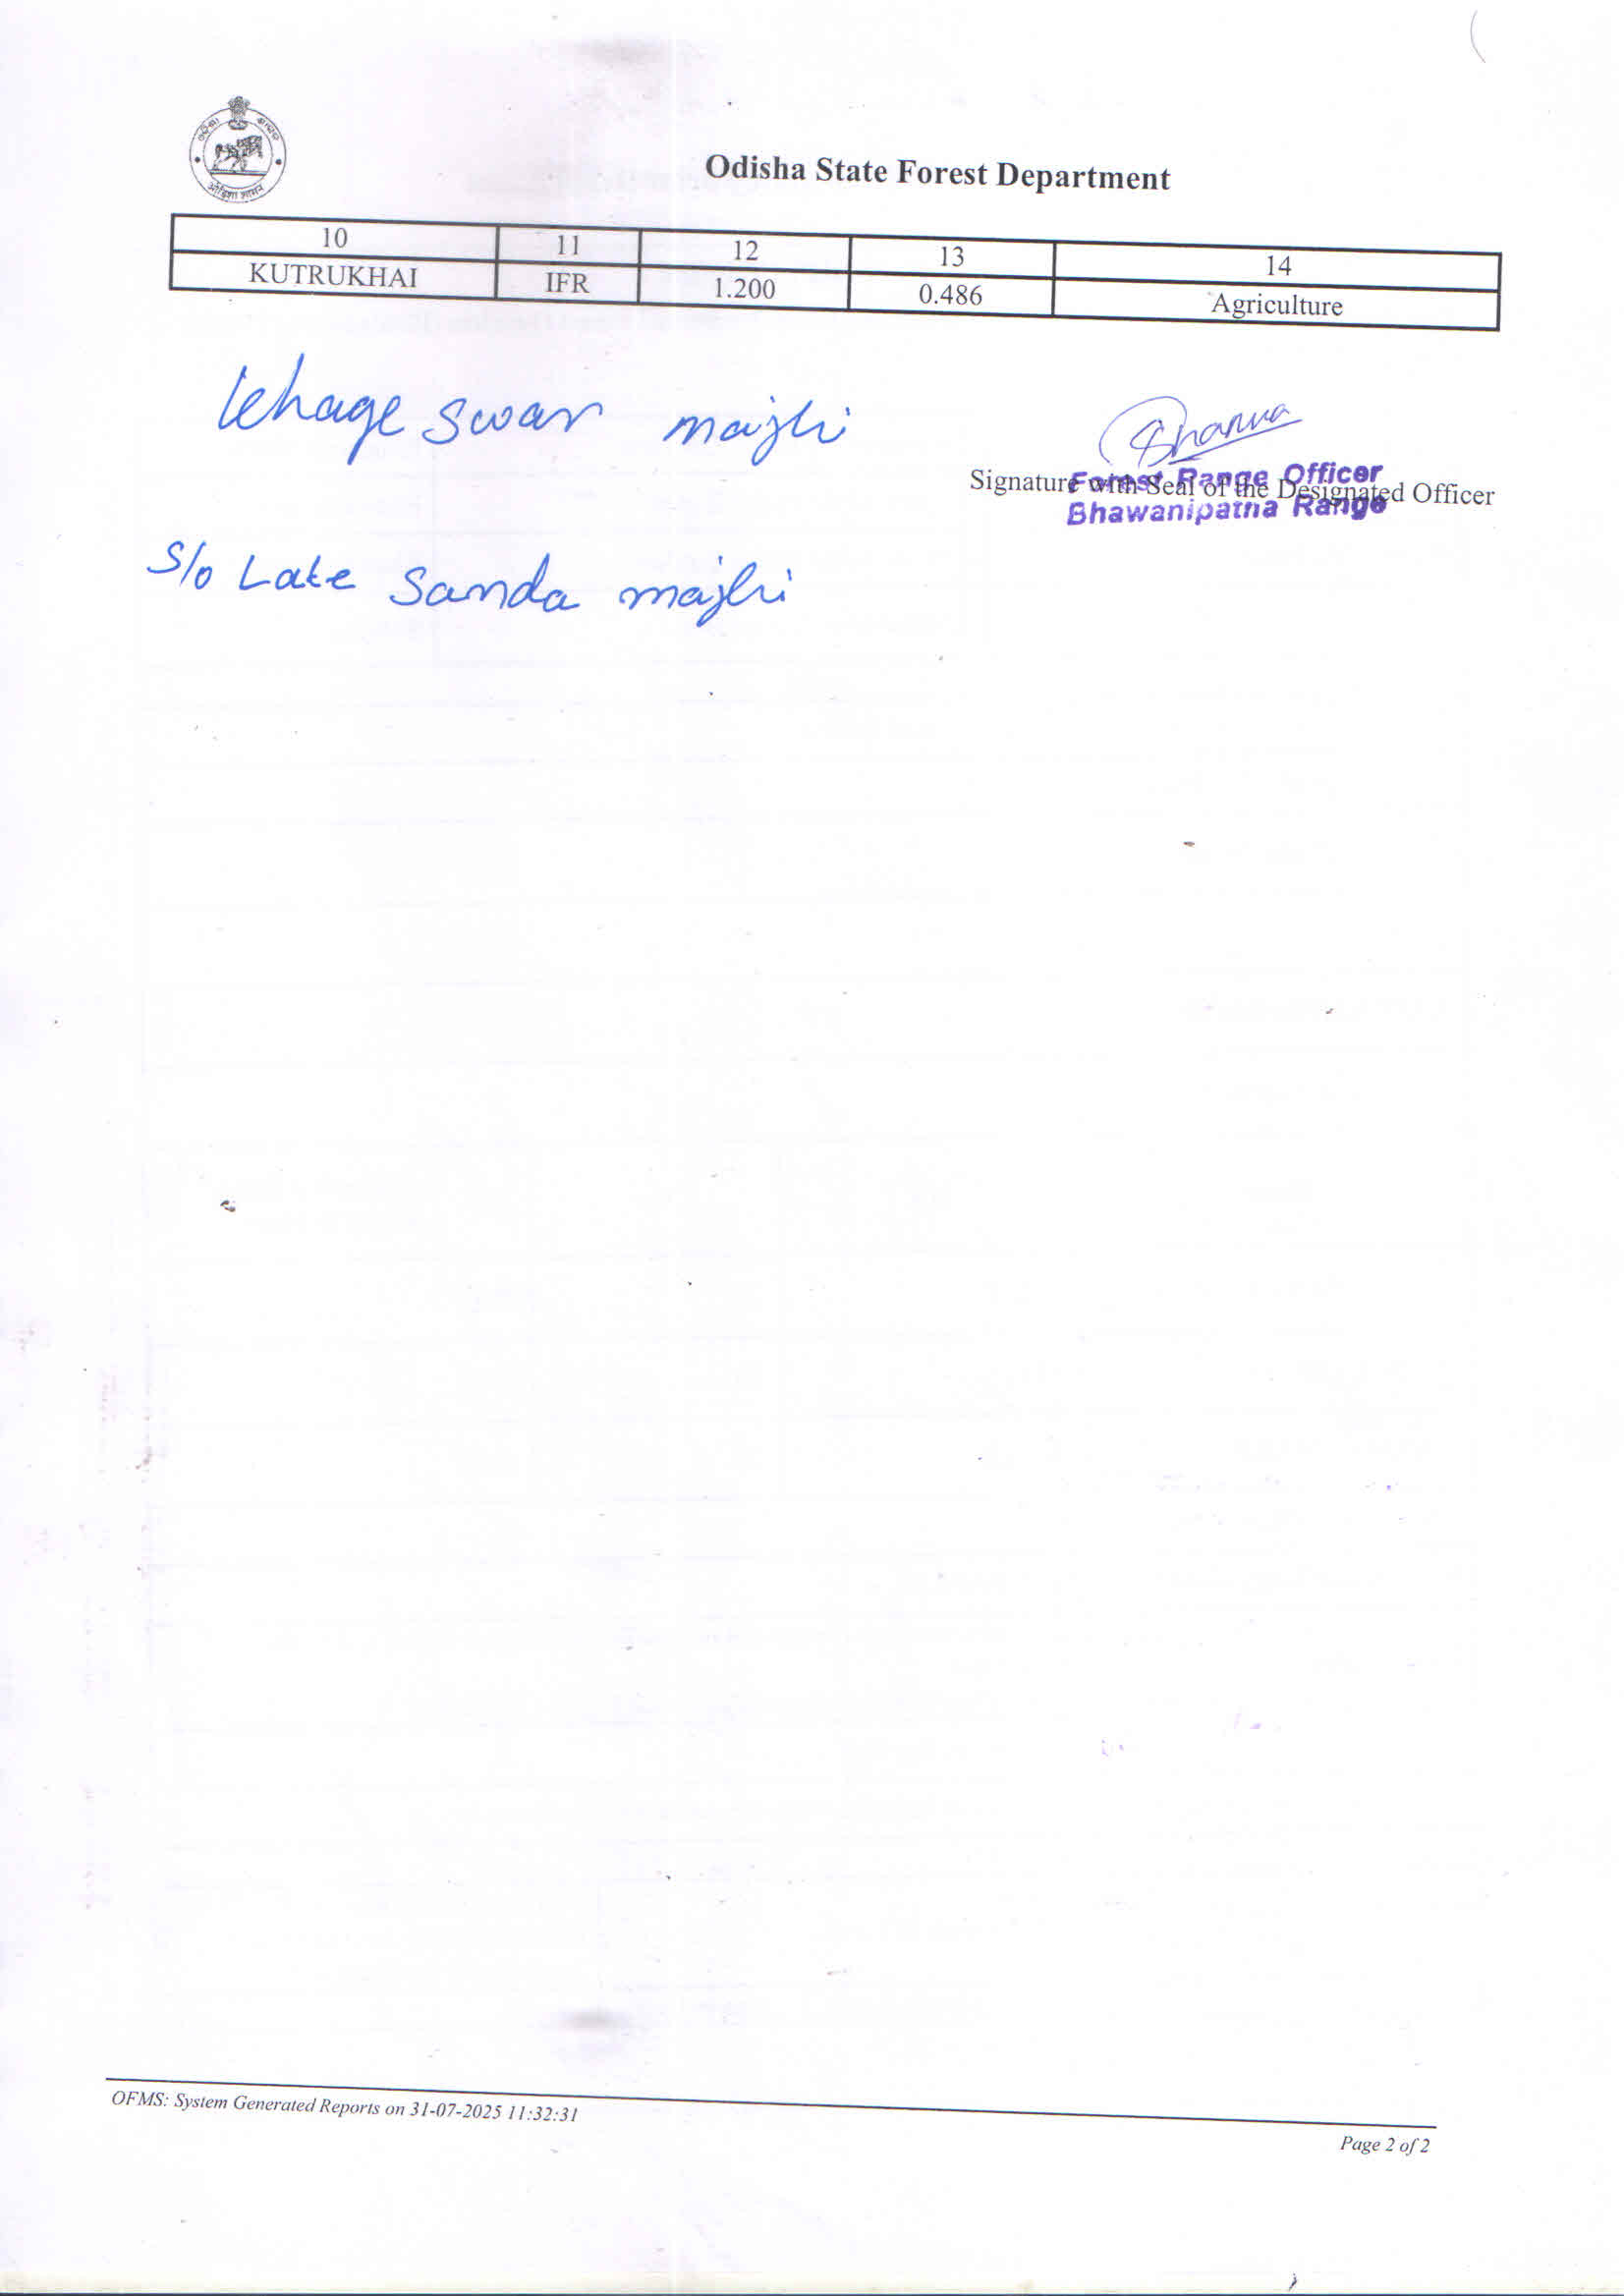 Odisha State Forest Department
10 11 12 13 14
KUTRUKHAI IFR 1.200 0.486 Agriculture
Khageswar majhi
Signature with Seal of the Designated Officer
Forest Range Officer
Bhawanipatna Range
S/o Late Sanda majhi
OFMS: System Generated Reports on 31-07-2025 11:32:31
Page 2 of 2